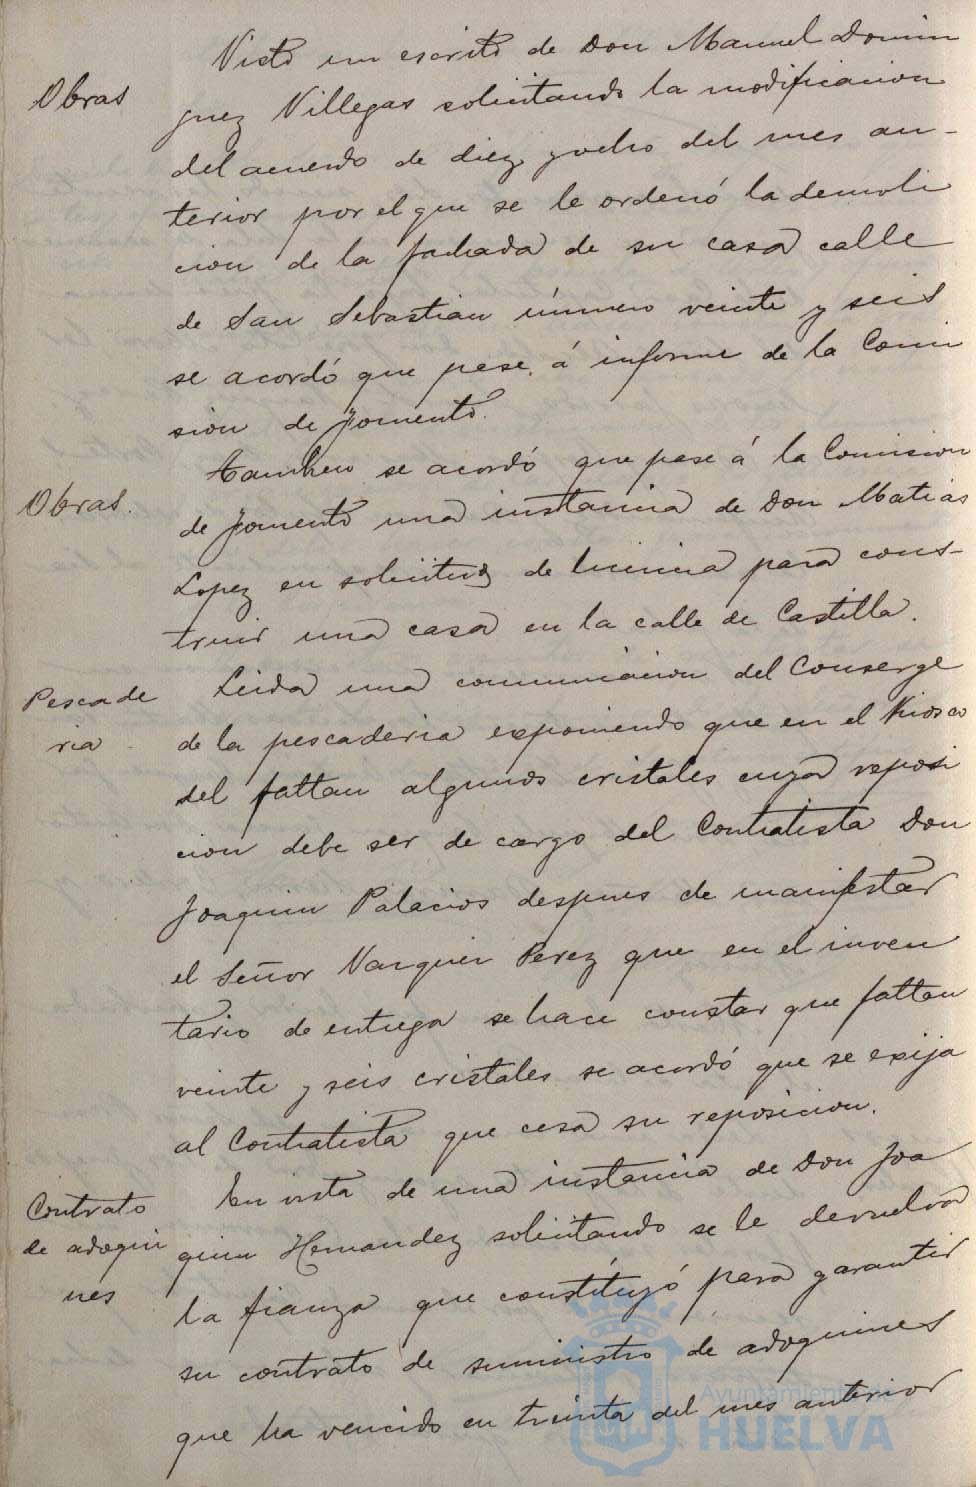 Visto un escrito de Don Manuel Domin
Obras
guez Villegas solicitando la modificacion
del acuerdo de diez y ocho del mes an-
terior por el que se le ordenó la demoli
cion de la fachada de su casa calle
de San Sebastian número veinte y seis
se acordó que pase á informe de la Comi
sion de Fomento.
Tambien se acordó que pase á la Comision
Obras.
de Fomento una instancia de Don Matias
Lopez en solicitud de licencia para cons-
truir una casa en la calle de Castilla.
Leida una comunicacion del Conserge
Pescade
ria
de la pescaderia exponiendo que en el Kiosco
del faltan algunos cristales cuya reposi
cion debe ser de cargo del Contratista Don
Joaquin Palacios despues de manifestar
el Señor Vazquez Perez que en el inven
tario de entrega se hace constar que faltan
veinte y seis cristales se acordó que se exija
al Contratista que cesa su reposicion.
En vista de una instancia de Don Joa
Contrato
de adoqui
nes
quin Hernandez solicitando se le devuelva
la fianza que constituyó para garantir
su contrato de suministro de adoquines
que ha vencido en treinta del mes anterior
Ayuntamiento de
HUELVA